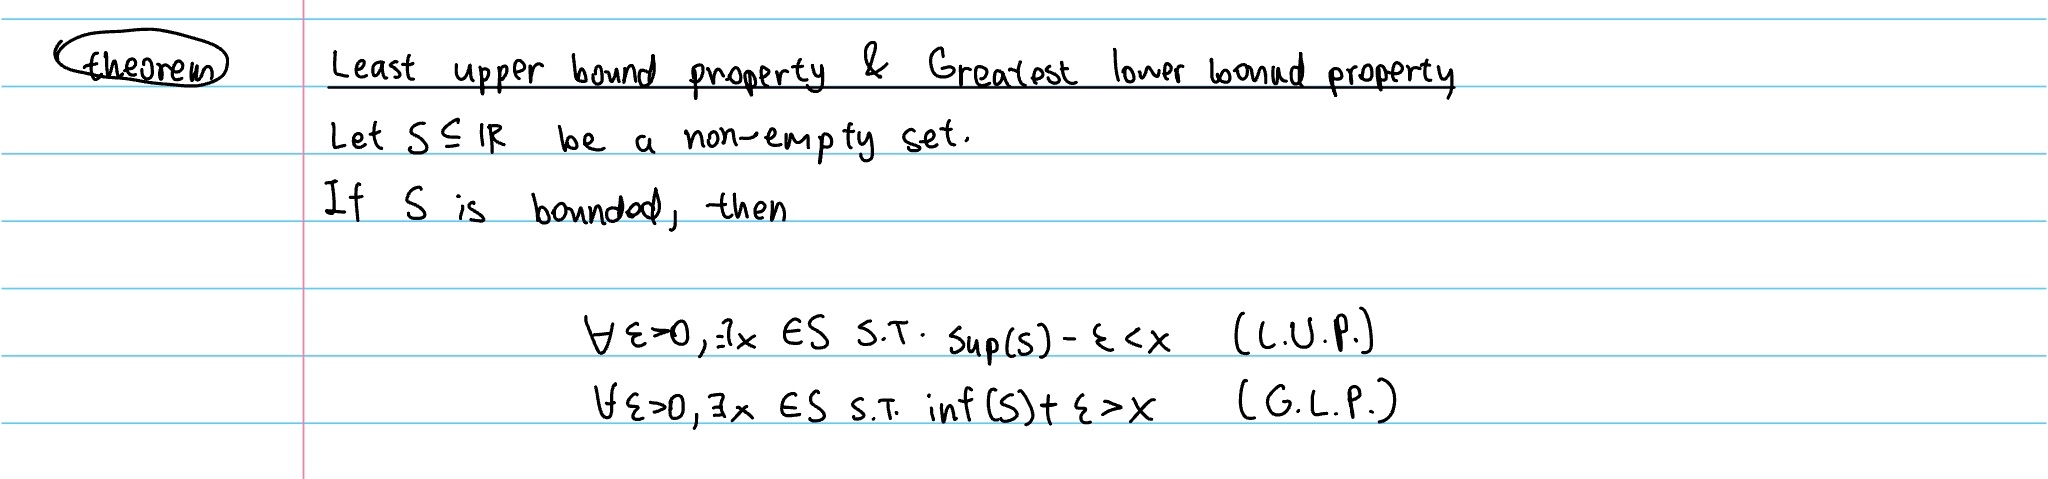 theorem Least upper bound property & Greatest lower bound property
Let S ⊆ ℝ be a non-empty set.
If S is bounded, then
∀ ε>0, ∃x ∈S S.T. Sup(S) - ε < x (L.U.P.)
∀ ε>0, ∃x ∈S S.T. inf(S) + ε > x (G.L.P.)